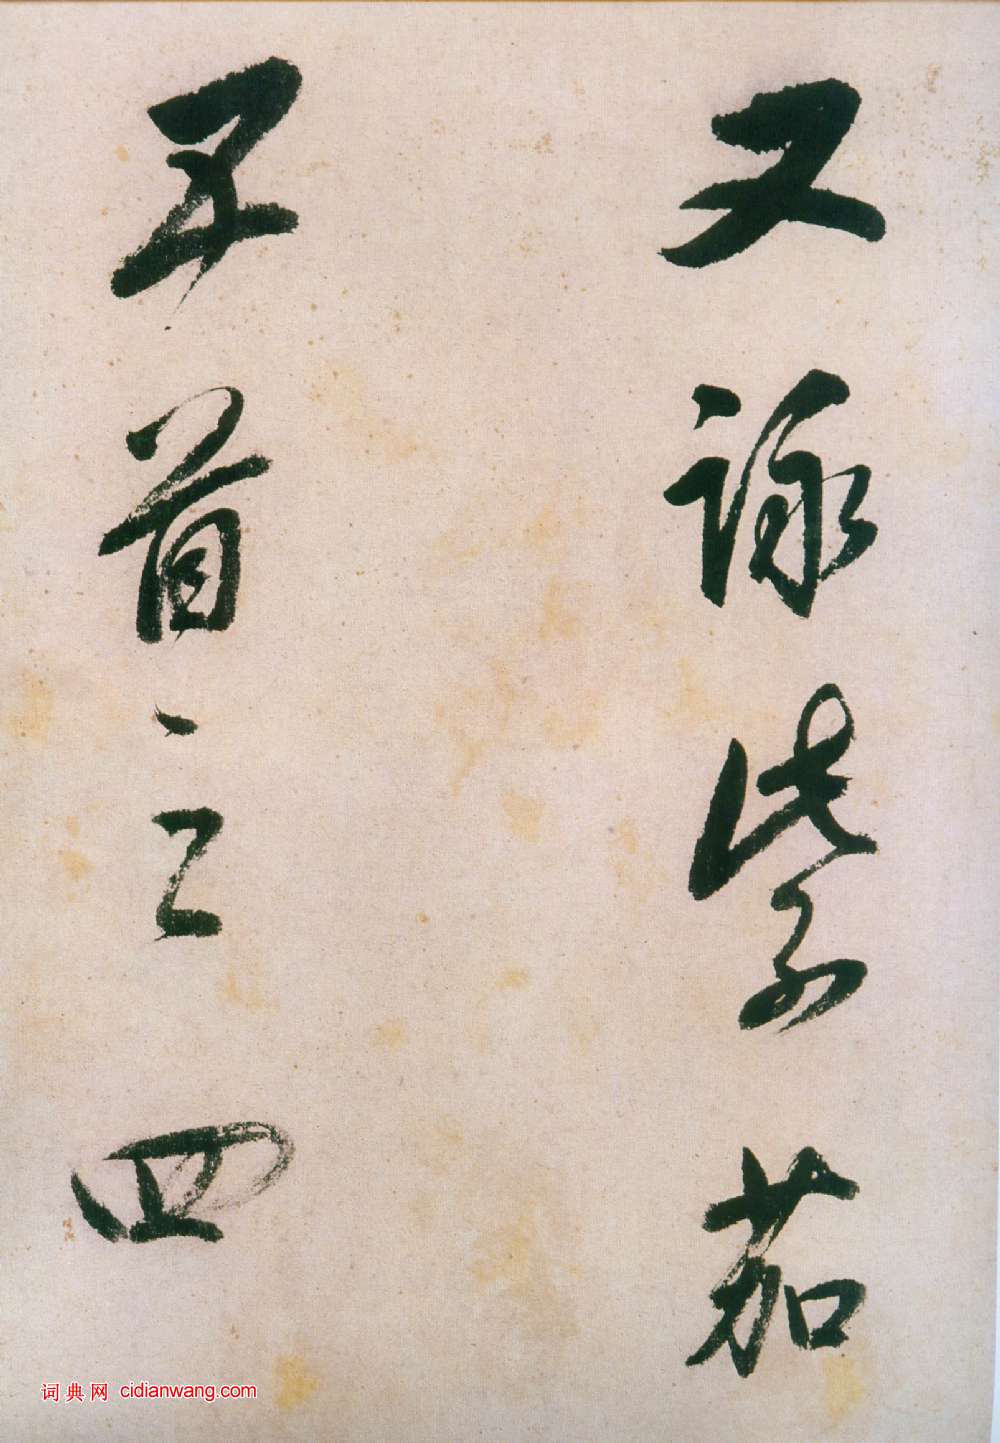 又詠紫茄
子首之四
词典网 cidianwang.com